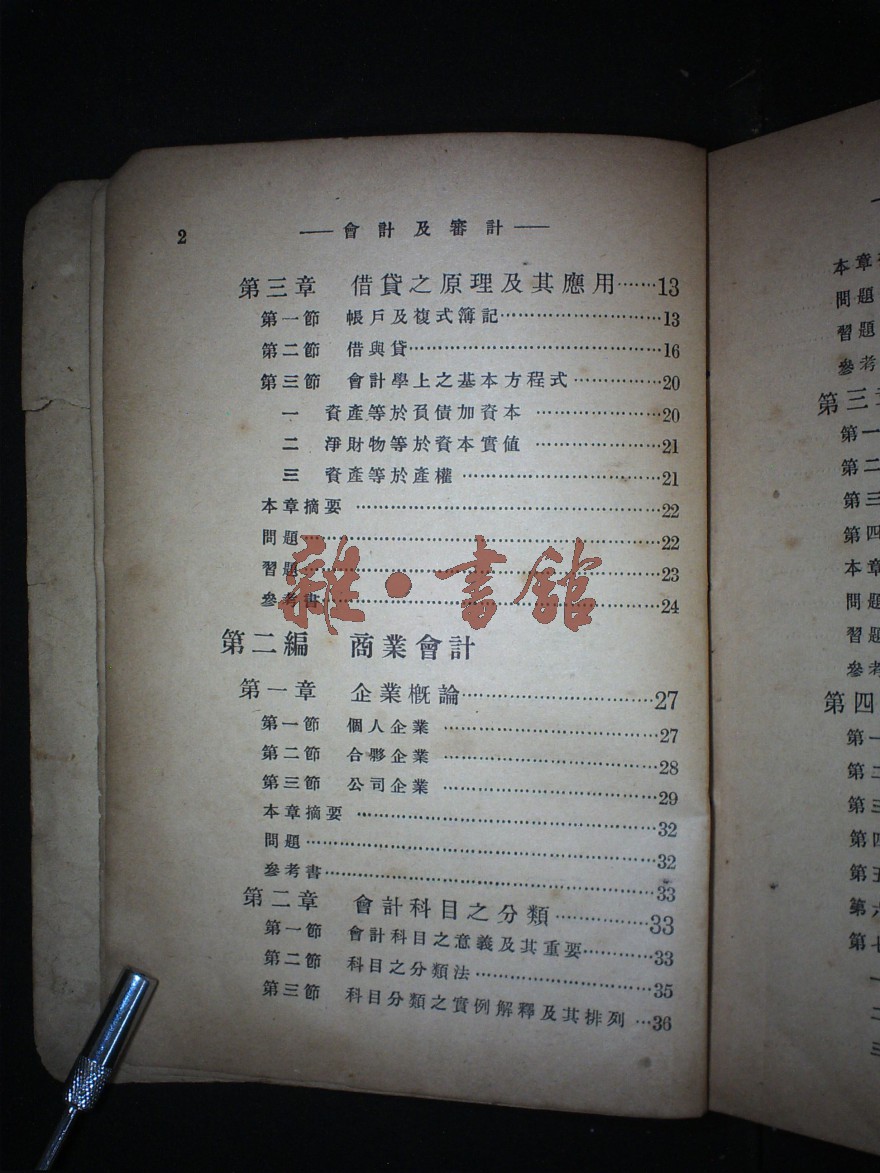 2 ——會計及審計——
第三章 借貸之原理及其應用……13
第一節 帳戶及複式簿記……………………13
第二節 借與貸………………………………16
第三節 會計學上之基本方程式…………20
一 資產等於負債加資本 ………………20
二 淨財物等於資本實値 ………………21
三 資產等於產權 …………………………21
本章摘要 ………………………………………22
問題………………………………………………22
習題………………………………………………23
參考書……………………………………………24
第二編 商業會計
第一章 企業槪論…………………………27
第一節 個人企業 ……………………………27
第二節 合夥企業 ……………………………28
第三節 公司企業 ……………………………29
本章摘要 ………………………………………32
問題………………………………………………32
參考書……………………………………………33
第二章 會計科目之分類……………33
第一節 會計科目之意義及其重要…………33
第二節 科目之分類法………………………35
第三節 科目分類之實例解釋及其排列 …36
雜·書館
本章
問題
習題
參考
第三
第一
第二
第三
第四
本章
問題
習題
參考
第四
第一
第二
第三
第四
第五
第六
第七
一
二
三